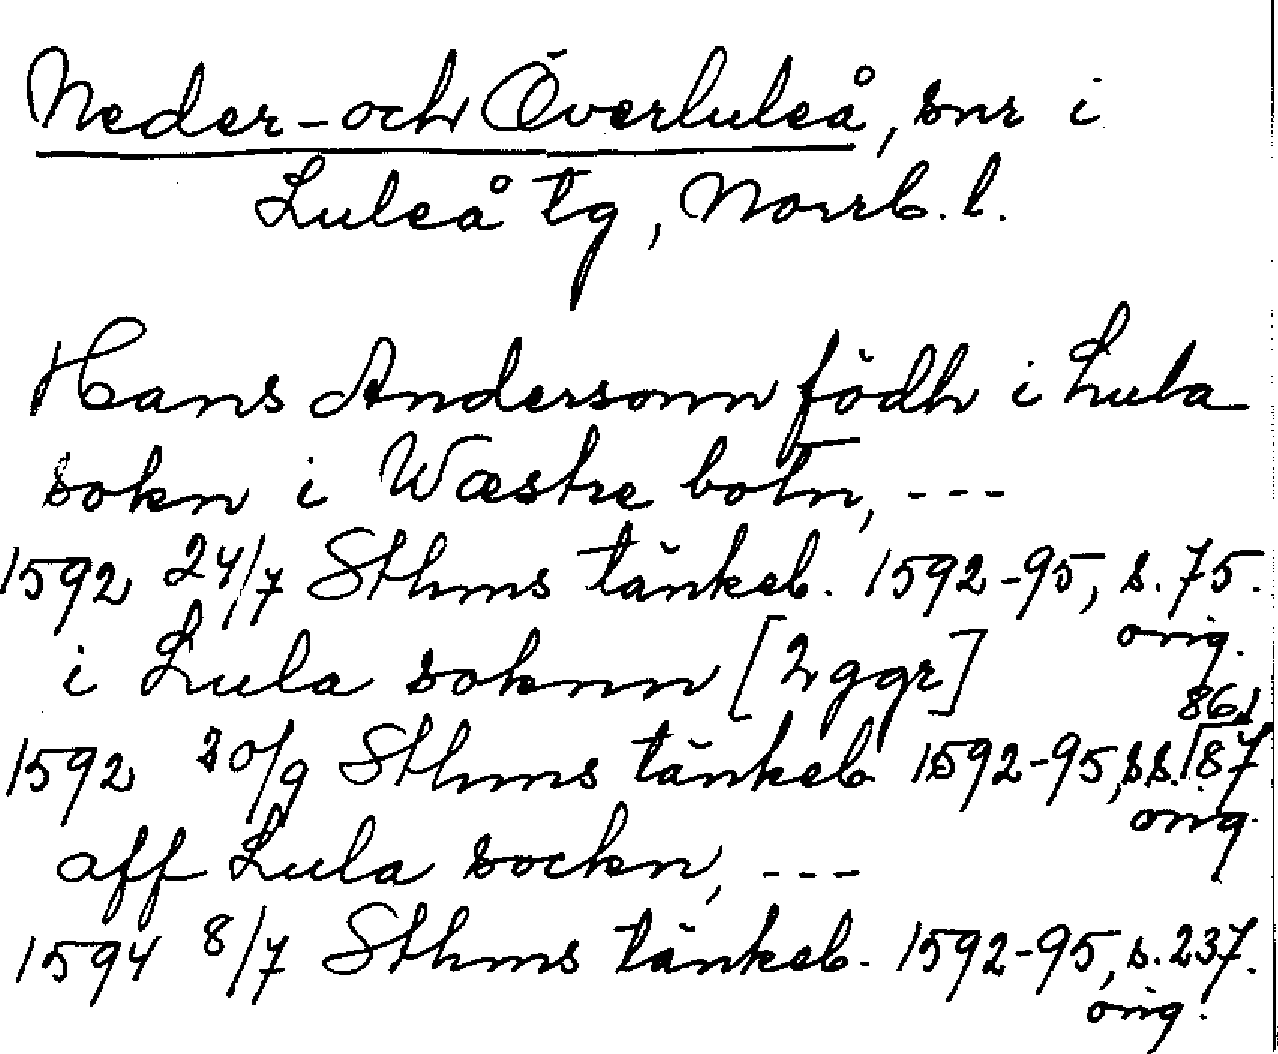 Neder- och Överluleå, snr i
Luleå tg, Norrb. l.
Hans Andersonn födh i Lula
sokn i Wæstre botn, ---
1592 24/7 Sthms tänkeb. 1592-95, s. 75.
orig.
i Lula soknn [2 ggr]
86,
1592 30/9 Sthms tänkeb 1592-95, ss. 87
orig.
aff Lula sockn, ---
1594 8/7 Sthms tänkeb. 1592-95, s. 237.
orig.